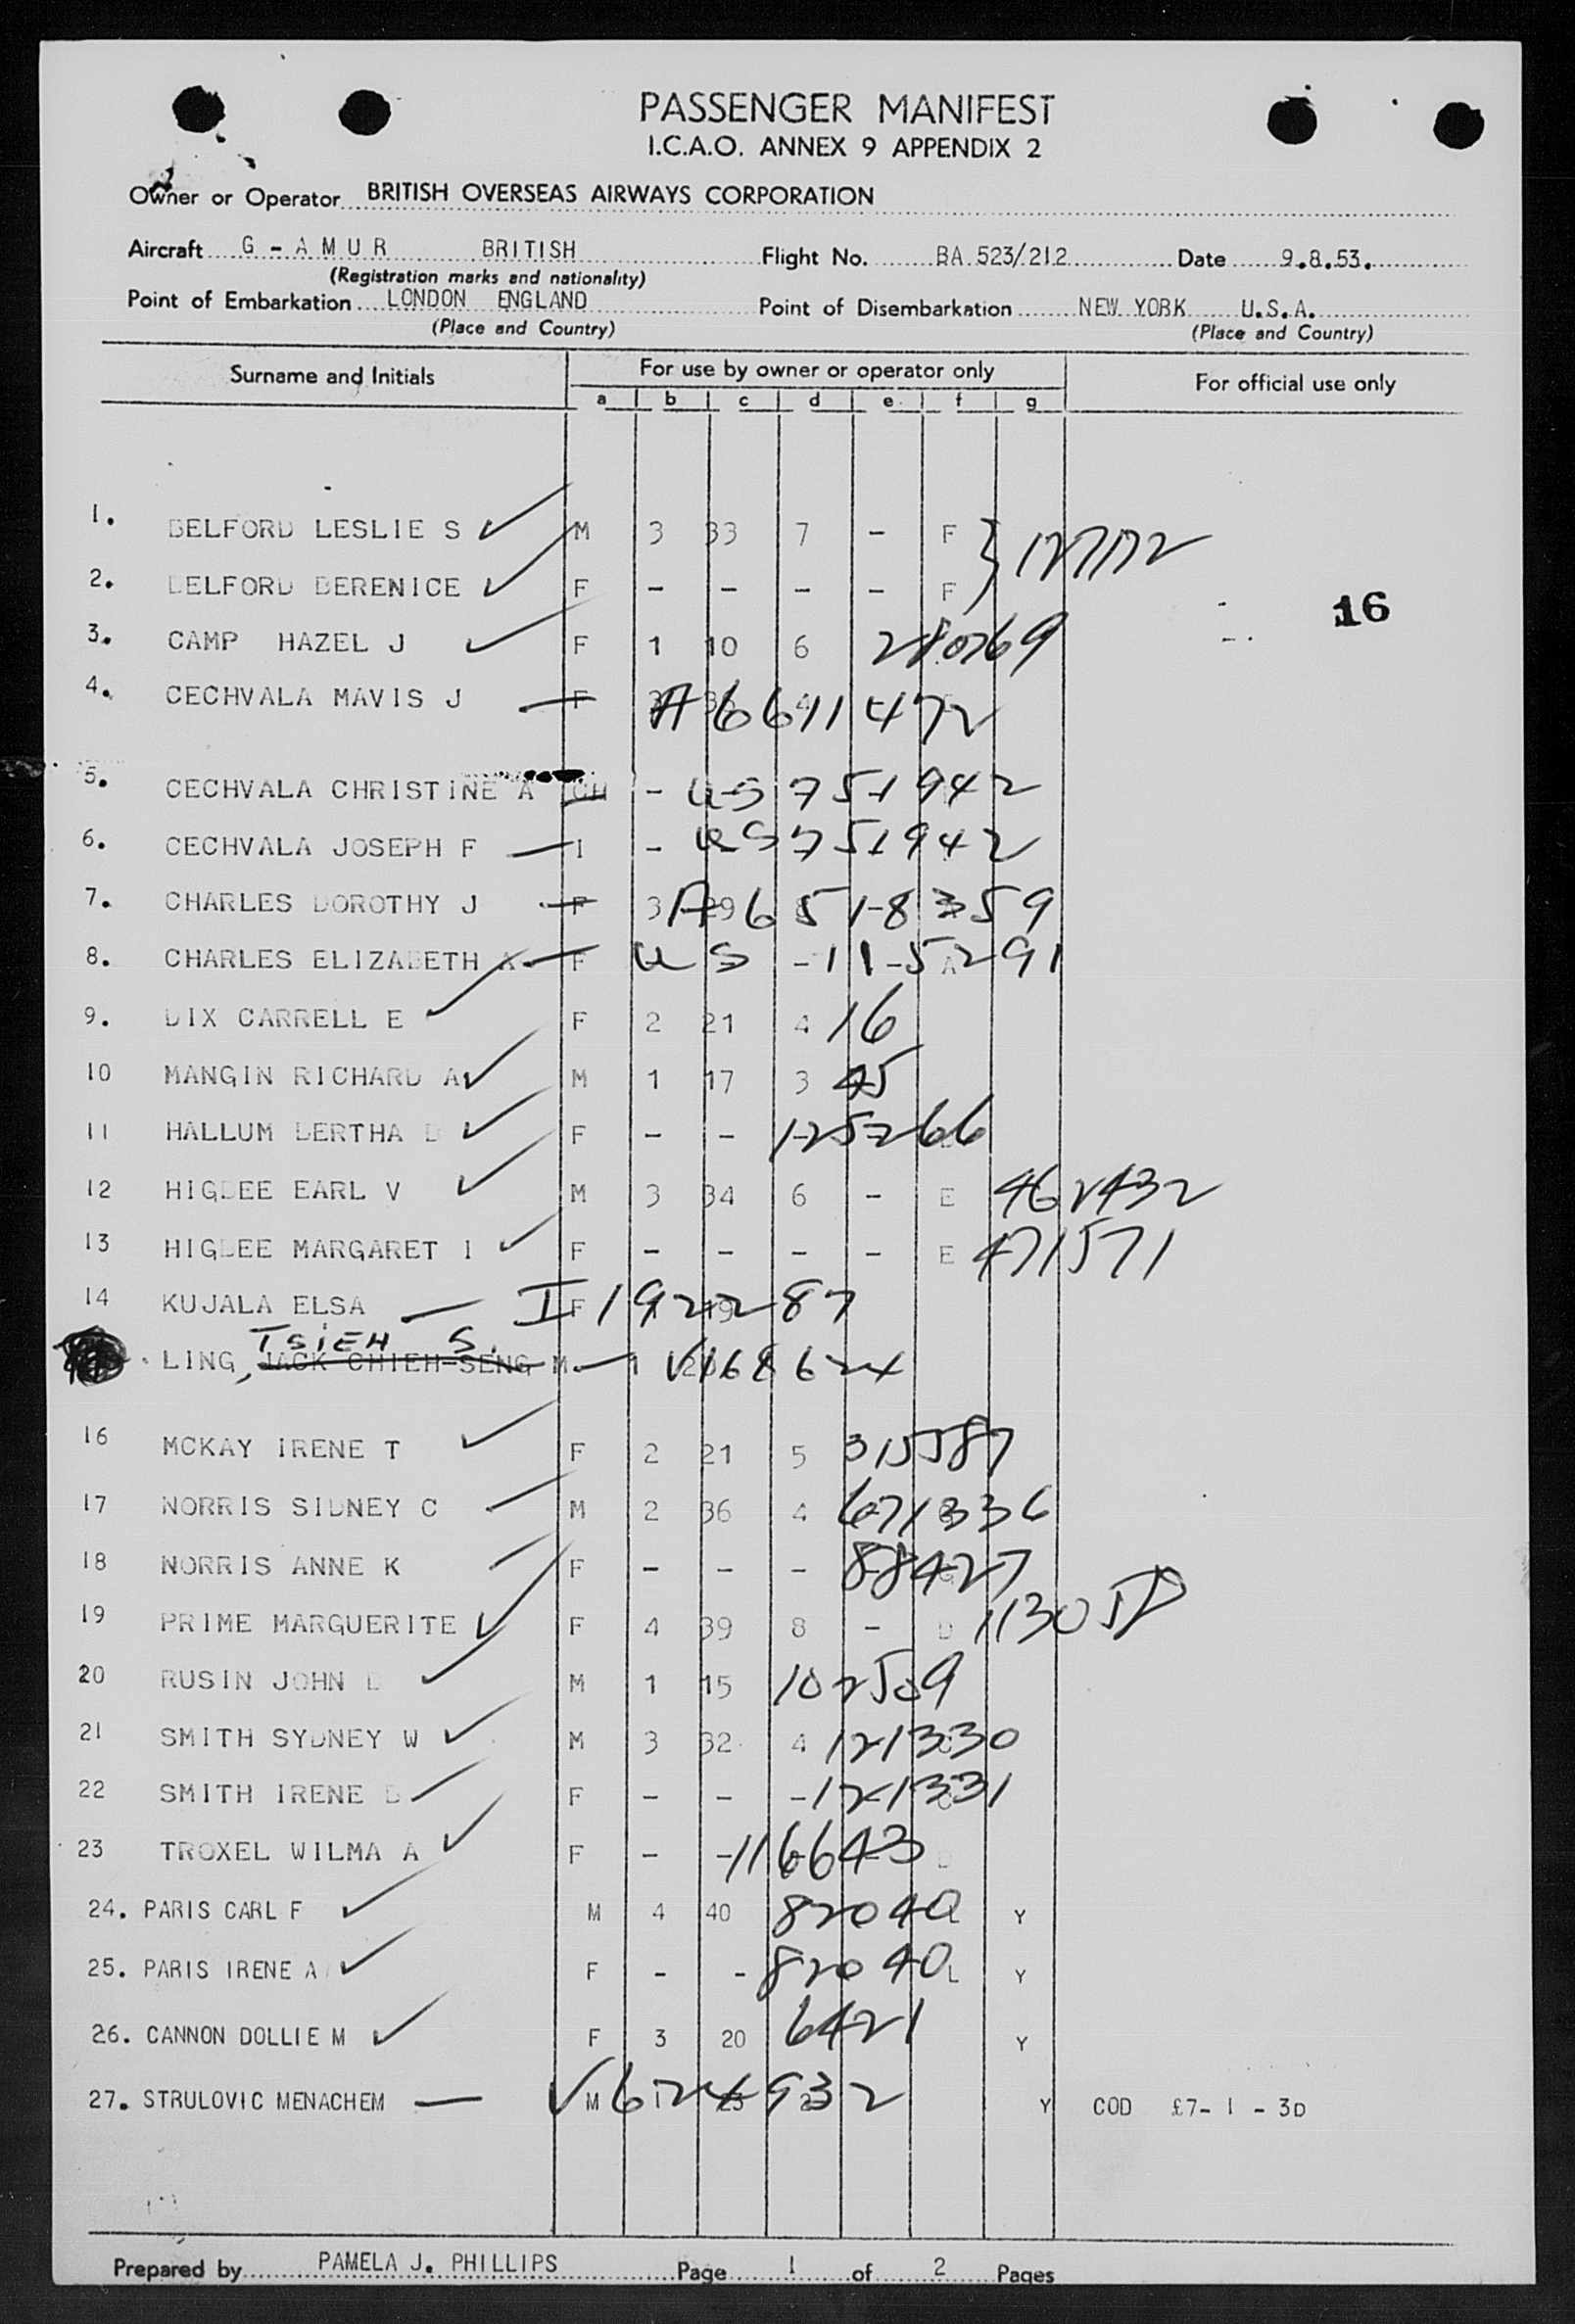 PASSENGER MANIFEST
I.C.A.O. ANNEX 9 APPENDIX 2
Owner or Operator BRITISH OVERSEAS AIRWAYS CORPORATION
Aircraft G - A M U R BRITISH Flight No. BA 523/212 Date 9.8.53.
(Registration marks and nationality)
Point of Embarkation LONDON ENGLAND Point of Disembarkation NEW YORK U.S.A.
(Place and Country) (Place and Country)
Surname and Initials For use by owner or operator only For official use only
a b c d e f g
1. BELFORD LESLIE S M 3 33 7 - F
2. BELFORD BERENICE F - - - - F
16
3. CAMP HAZEL J F 1 10 6 280769
4. CECHVALA MAVIS J F A6611472
5. CECHVALA CHRISTINE A CH - US 751942
6. CECHVALA JOSEPH F I - US 751942
7. CHARLES DOROTHY J F 3 29 A6518359
8. CHARLES ELIZABETH A F US -115291
9. DIX CARRELL E F 2 21 4 16
10 MANGIN RICHARD A M 1 17 3 45
11 HALLUM BERTHA B F - - 125266
12 HIGBEE EARL V M 3 34 6 - E 462432
13 HIGBEE MARGARET I F - - - - E 471571
14 KUJALA ELSA F I 192287
TSIEH S.
LING, JACK CHIEH-SENG M 1 V168624
16 MCKAY IRENE T F 2 21 5 315587
17 NORRIS SIDNEY C M 2 36 4 671336
18 NORRIS ANNE K F - - - 88427
19 PRIME MARGUERITE F 4 39 8 - D
20 RUSIN JOHN M 1 15 102509
21 SMITH SYDNEY W M 3 32 4 121330
22 SMITH IRENE B F - - - 121331
23 TROXEL WILMA A F - - 116643
24. PARIS CARL F M 4 40 82040 L Y
25. PARIS IRENE A F - - 82040 L Y
26. CANNON DOLLIE M F 3 20 6421 Y
27. STRULOVIC MENACHEM M V624932 Y COD £7- 1 - 3D
Prepared by PAMELA J. PHILLIPS Page 1 of 2 Pages